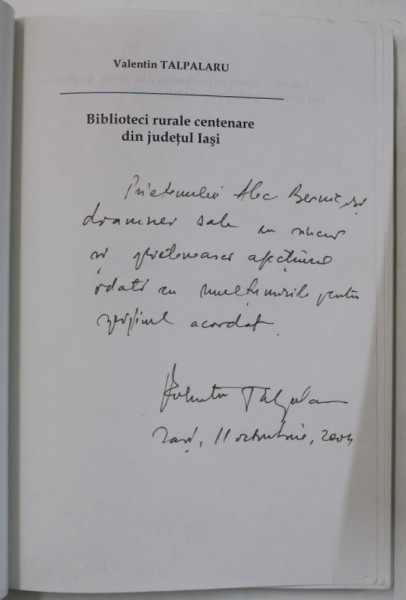 Valentin TALPALARU
Biblioteci rurale centenare
din județul Iaşi
Prietenului Alec
doamnei sale cu
și prietenească afecțiune
odată cu mulțumirile pentru
sprijinul acordat.
Valentin Talpalaru
Iași, 11 octombrie, 2004